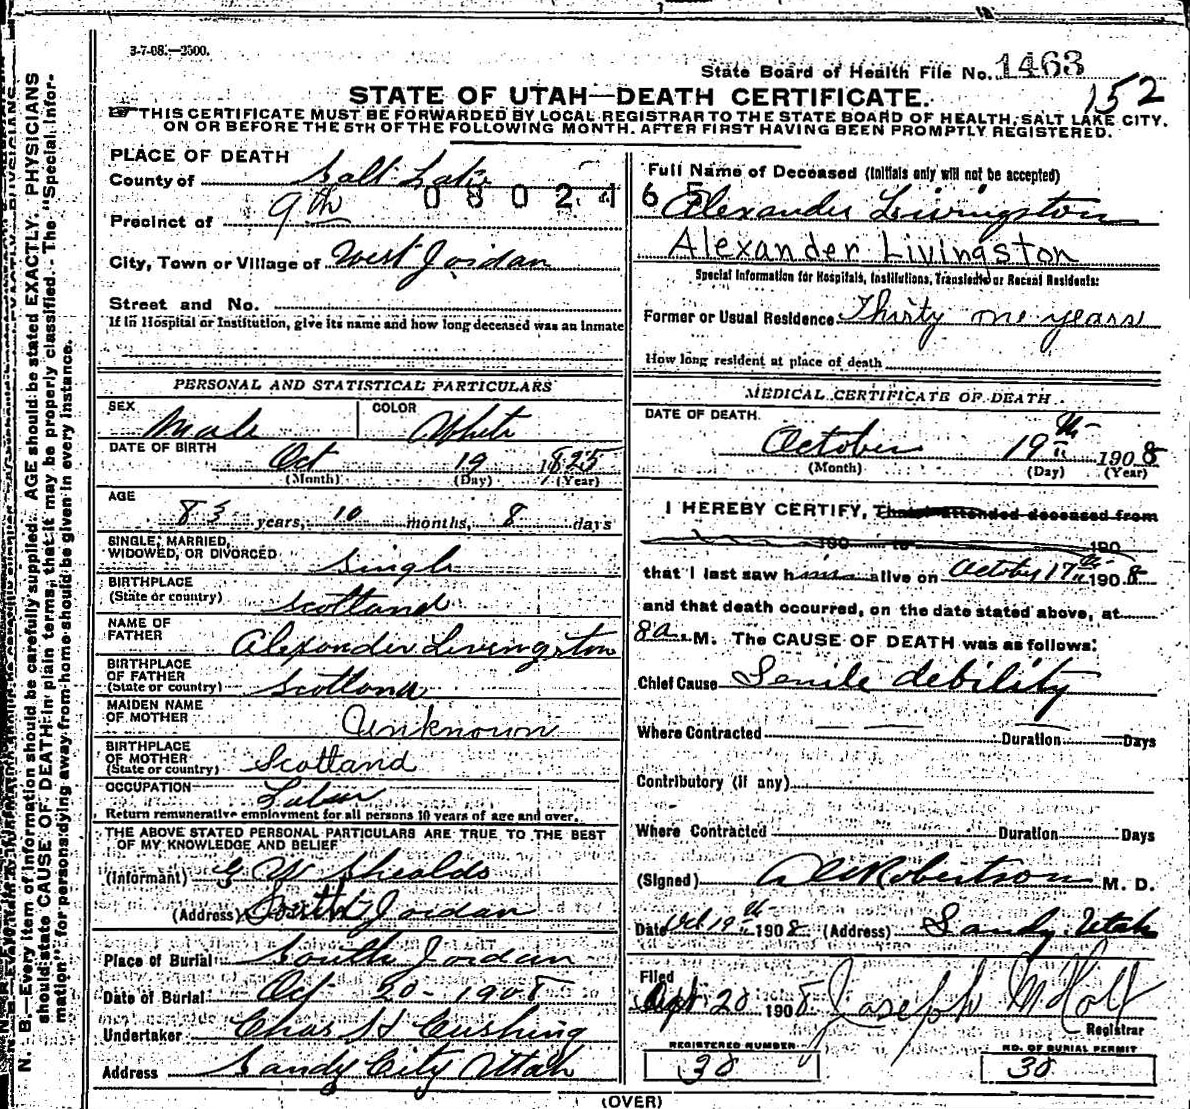 3-7-08.—2500.
State Board of Health File No. 1463
152
STATE OF UTAH—DEATH CERTIFICATE.
THIS CERTIFICATE MUST BE FORWARDED BY LOCAL REGISTRAR TO THE STATE BOARD OF HEALTH, SALT LAKE CITY,
ON OR BEFORE THE 5TH OF THE FOLLOWING MONTH. AFTER FIRST HAVING BEEN PROMPTLY REGISTERED.
PLACE OF DEATH
County of Salt Lake
Precinct of 9th
City, Town or Village of West Jordan
Street and No.
If in Hospital or Institution, give its name and how long deceased was an inmate
PERSONAL AND STATISTICAL PARTICULARS
SEX Male COLOR White
DATE OF BIRTH Oct 19 1825
(Month) (Day) (Year)
AGE 83 years, 10 months, 8 days
SINGLE, MARRIED,
WIDOWED, OR DIVORCED Single
BIRTHPLACE
(State or country) Scotland
NAME OF
FATHER Alexander Livingston
BIRTHPLACE
OF FATHER
(State or country) Scotland
MAIDEN NAME
OF MOTHER Unknown
BIRTHPLACE
OF MOTHER
(State or country) Scotland
OCCUPATION Labor
Return remunerative employment for all persons 10 years of age and over.
THE ABOVE STATED PERSONAL PARTICULARS ARE TRUE TO THE BEST
OF MY KNOWLEDGE AND BELIEF
(Informant) G W Shealds
(Address) South Jordan
Place of Burial South Jordan
Date of Burial Oct 20-1908
Undertaker Chas H Cushing
Address Sandy City Utah
Full Name of Deceased (Initials only will not be accepted)
Alexander Livingston
Alexander Livingston
Special Information for Hospitals, Institutions, Transients or Recent Residents:
Former or Usual Residence Thirty one years
How long resident at place of death
MEDICAL CERTIFICATE OF DEATH
DATE OF DEATH.
October 19th 1908
(Month) (Day) (Year)
I HEREBY CERTIFY, That I attended deceased from
190 to 190
that I last saw h alive on October 17th 1908
and that death occurred, on the date stated above, at
8 a. M. The CAUSE OF DEATH was as follows:
Chief Cause Senile debility
Where Contracted Duration Days
Contributory (if any)
Where Contracted Duration Days
(Signed) Robertson M. D.
Date Oct 19th 1908 (Address) Sandy Utah
Filed
20 1908 Joseph M Holt
Registrar
REGISTERED NUMBER
38
NO. OF BURIAL PERMIT
38
(OVER)
N. B.—Every item of information should be carefully supplied. AGE should be stated EXACTLY. PHYSICIANS
should state CAUSE OF DEATH in plain terms, that it may be properly classified. The "Special Infor-
mation" for persons dying away from home should be given in every instance.